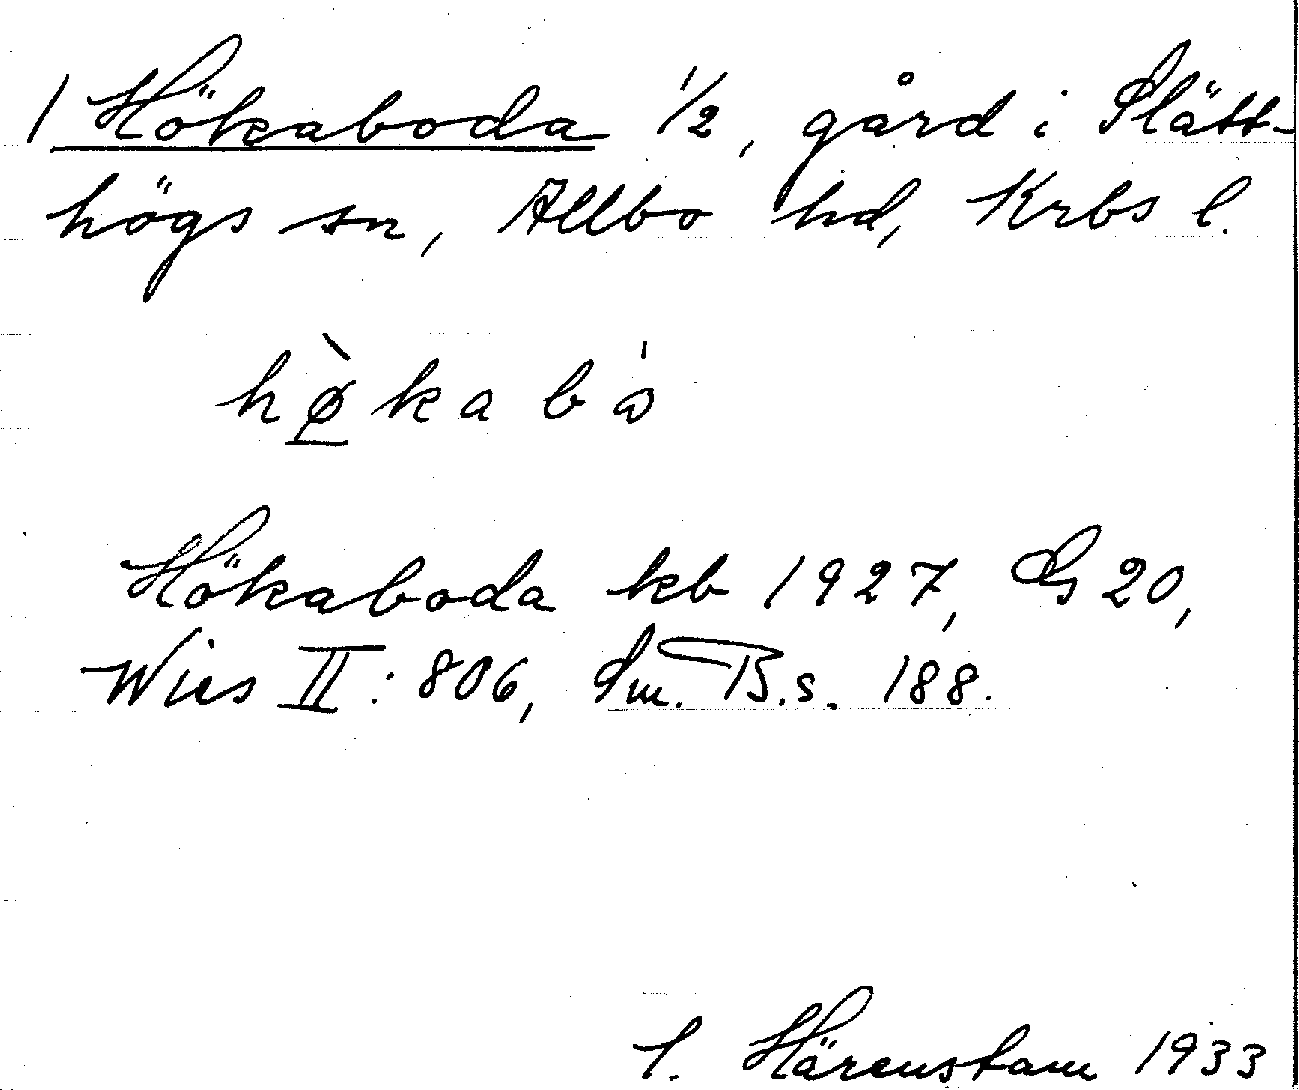 1 Hökaboda 1/2, gård i Slätt-
högs sn, Allbo hd, Krbs l.
hø̀kabó
Hökaboda kb 1927, GS 20,
Wies II: 806, Sm. B.s. 188.
Härenstam 1933